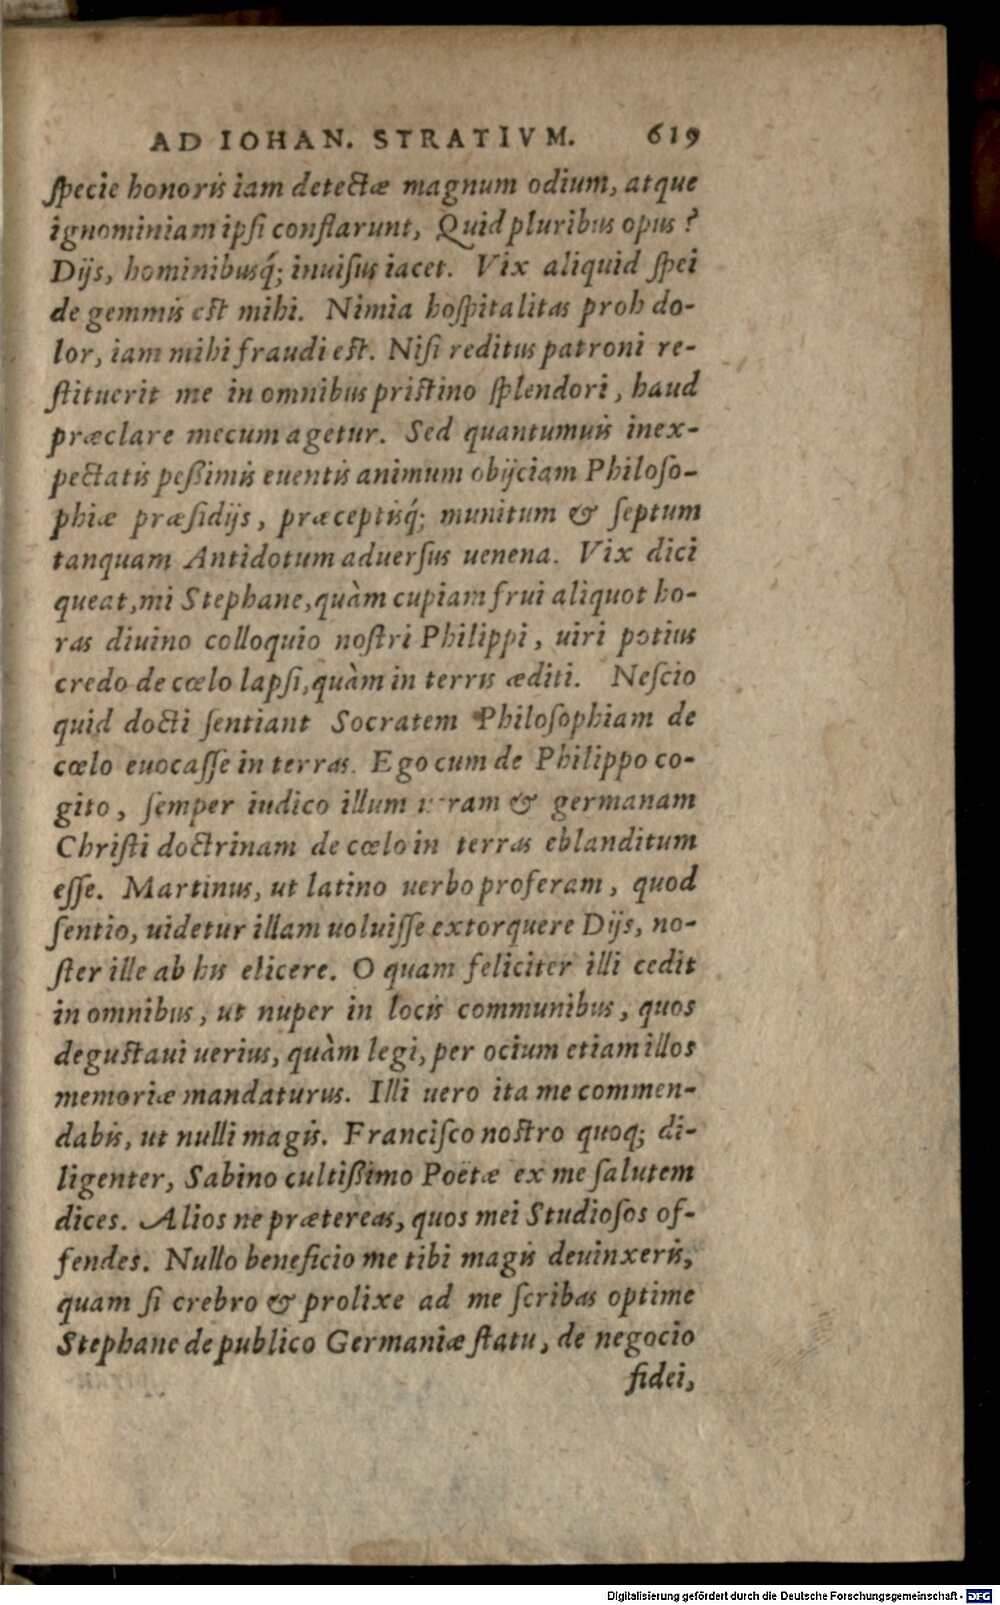 AD IOHAN. STRATIVM. 619
ſpecie honoris iam detectæ magnum odium, atque
ignominiam ipſi conflarunt, Quid pluribus opus ?
Dijs, hominibusq́; inuiſus iacet. Vix aliquid ſpei
de gemmis eſt mihi. Nimia hoſpitalitas proh do-
lor, iam mihi fraudi eſt. Niſi reditus patroni re-
ſtituerit me in omnibus priſtino ſplendori, haud
præclare mecum agetur. Sed quantumuis inex-
pectatis peßimis euentis animum obijciam Philoſo-
phiæ præſidijs, præceptisq́; munitum & ſeptum
tanquam Antidotum aduerſus uenena. Vix dici
queat, mi Stephane, quàm cupiam frui aliquot ho-
ras diuino colloquio noſtri Philippi, uiri potius
credo de cœlo lapſi, quàm in terris æditi. Neſcio
quid docti ſentiant Socratem Philoſophiam de
cœlo euocaſſe in terras. Ego cum de Philippo co-
gito, ſemper iudico illum ueram & germanam
Chriſti doctrinam de cœlo in terras eblanditum
eſſe. Martinus, ut latino uerbo proferam, quod
ſentio, uidetur illam uoluiſſe extorquere Dijs, no-
ſter ille ab his elicere. O quam feliciter illi cedit
in omnibus, ut nuper in locis communibus, quos
deguſtaui uerius, quàm legi, per ocium etiam illos
memoriæ mandaturus. Illi uero ita me commen-
dabis, ut nulli magis. Franciſco noſtro quoq; di-
ligenter, Sabino cultißimo Poëtæ ex me ſalutem
dices. Alios ne prætereas, quos mei Studioſos of-
fendes. Nullo beneficio me tibi magis deuinxeris,
quam ſi crebro & prolixe ad me ſcribas optime
Stephane de publico Germaniæ ſtatu, de negocio
fidei,
Digitalisierung gefördert durch die Deutsche Forschungsgemeinschaft - DFG